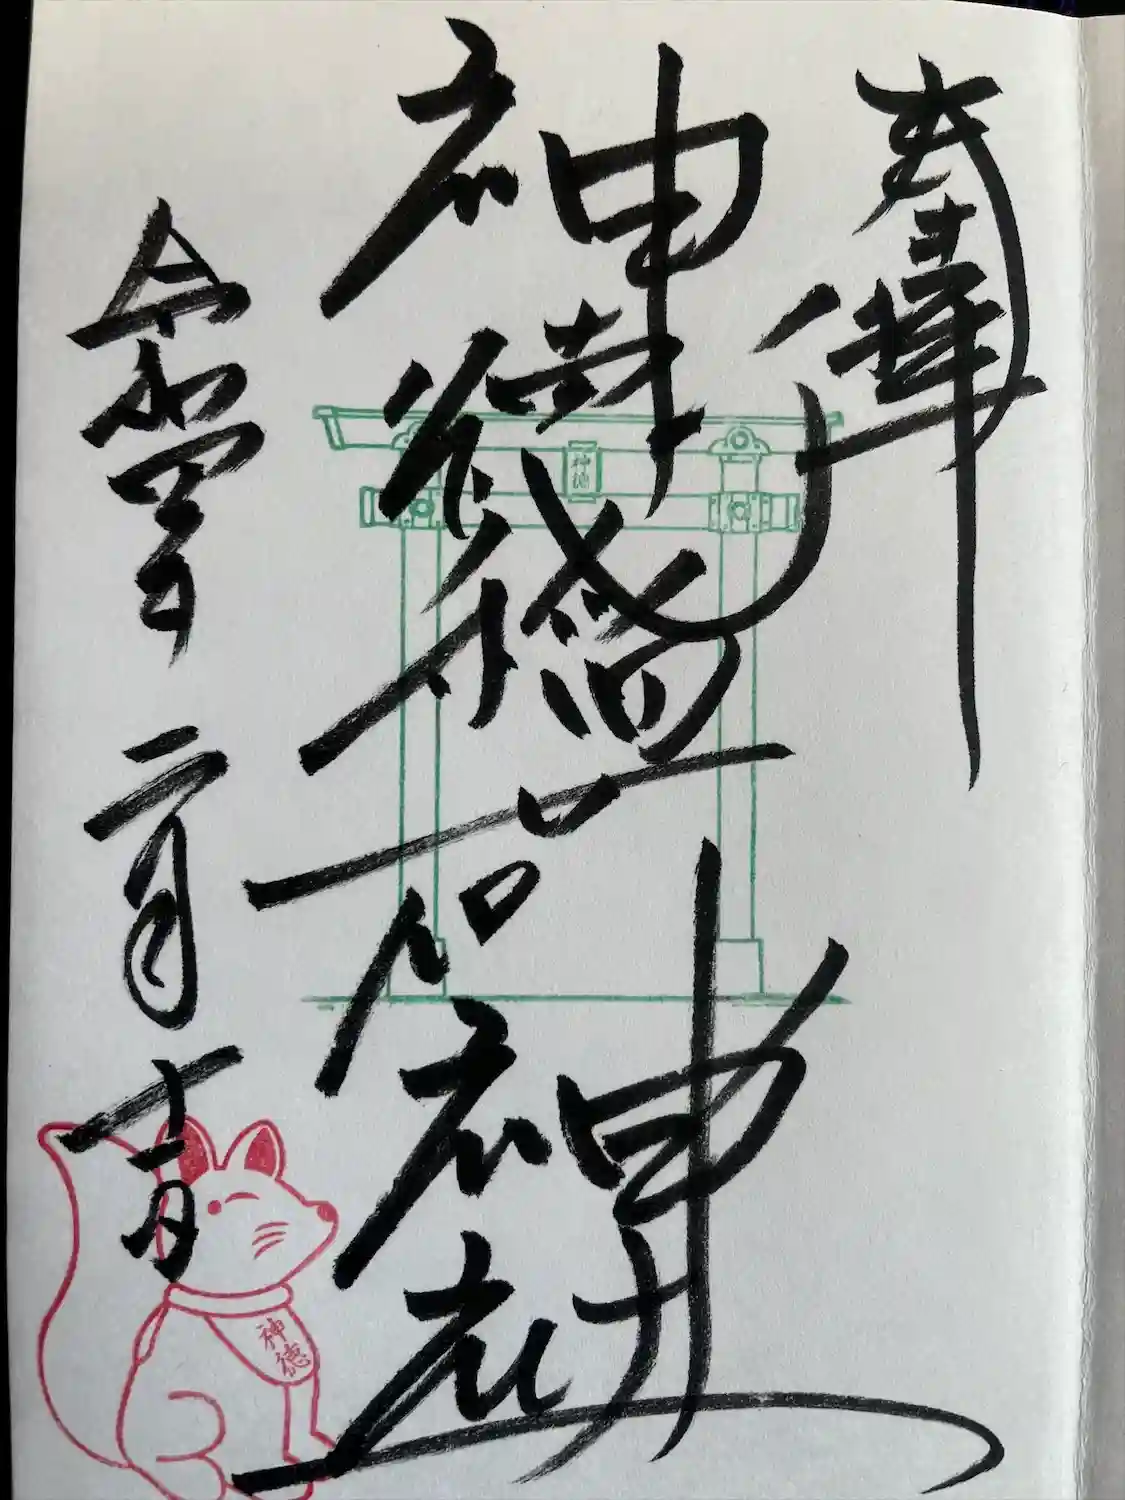 奉拝
神徳稲荷神社
令和四年二月十一日
神徳
神徳